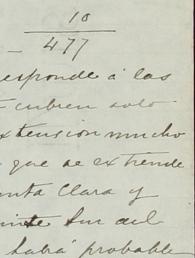 10
477
esponde á las
cubren solo
xtension mucho
que se extiende
nta Clara y
Sur del
habrá probable